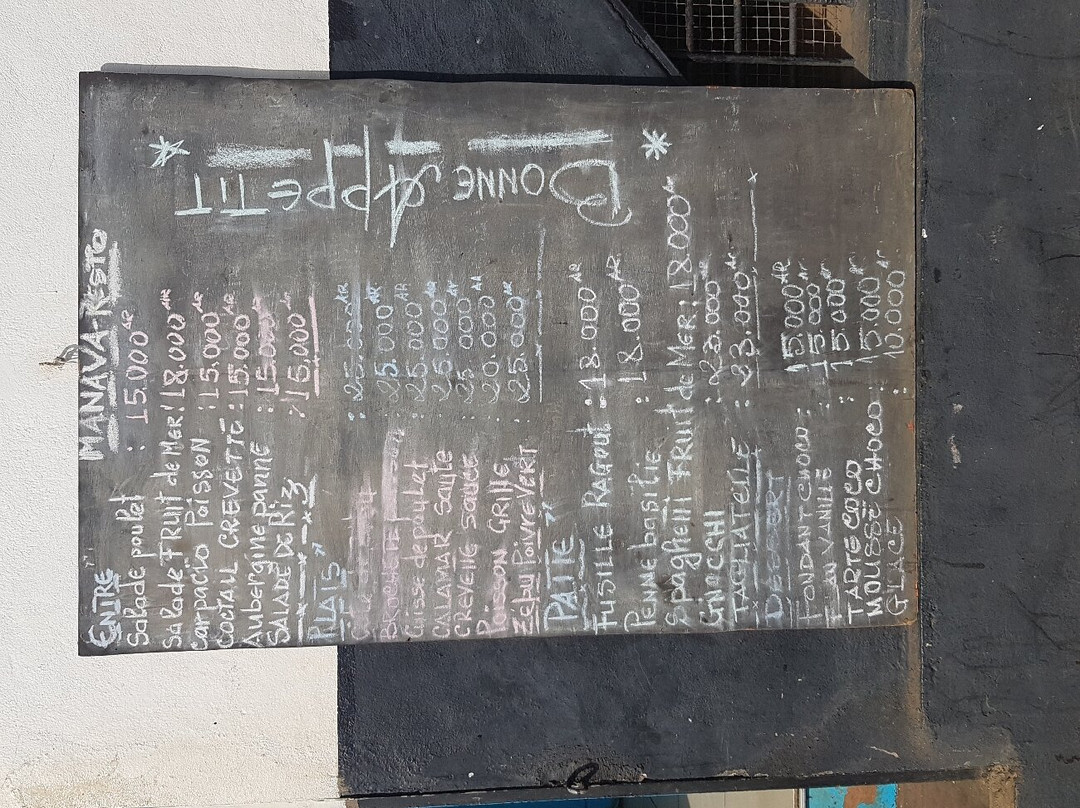 MANAVA-RESTO
ENTRE
Salade poulet : 15.000 AR
Salade FRUIT de MER : 18.000 AR
Carpacio Poisson : 15.000 AR
COCTAIL CREVETTE : 15.000 AR
Aubergine panne : 15.000 Ar
SALADE DE Riz : 15.000 Ar
PLAIS
: 25.000 AR
BROCHETTE : 25.000 AR
Cuisse de poulet : 25.000 AR
CALAMAR Saute : 25.000 AR
CREVETTE Sauce : 25.000 AR
POISSON GRILLE : 20.000 AR
Zébu Poivre VERT : 25.000 AR
PATTE
FUSILLE RAGOUT : 18.000 AR
PENNE basilic : 18.000 AR
Spagheni FRUIT de MER : 18.000 AR
GNOCCHI : 23.000 AR
TAGLIATELLE : 23.000 AR
DESSERT
FONDANT CHOCO : 15.000 AR
FLAN VANILLE : 15.000 AR
TARTE COCO : 15.000 AR
MOUSSE CHOCO : 15.000 Ar
GLACE : 10.000 Ar
BONNE APPETIT